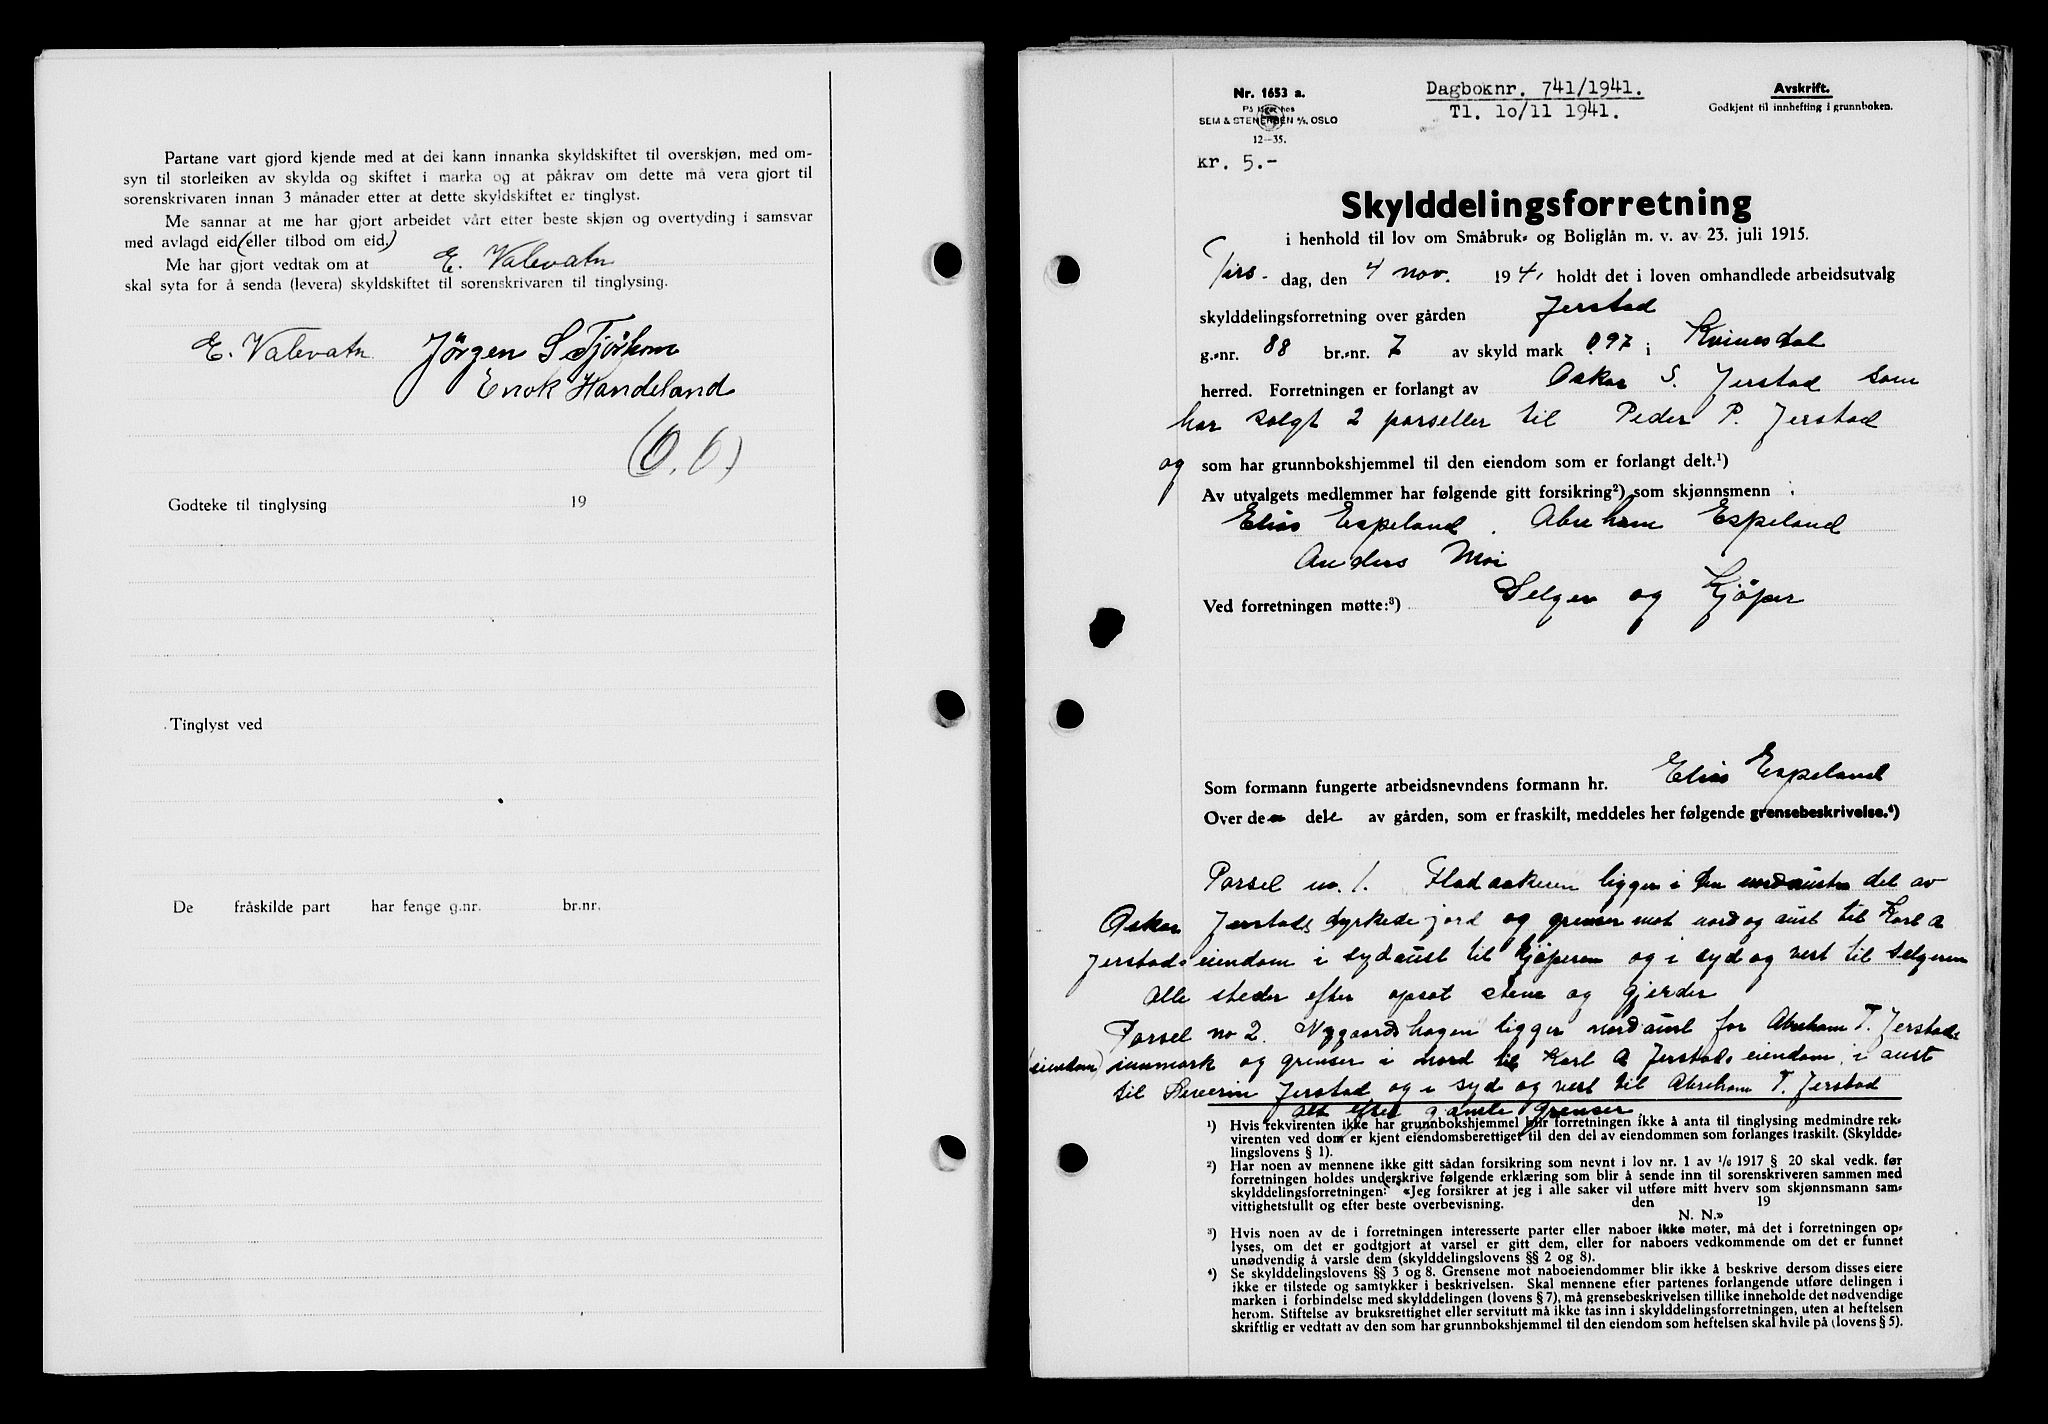 Partane vart gjord kjende med at dei kann innanka skyldskiftet til overskjøn, med om-
syn til storleiken av skylda og skiftet i marka og at påkrav om dette må vera gjort til
sorenskrivaren innan 3 månader etter at dette skyldskiftet er tinglyst.
Me sannar at me har gjort arbeidet vårt etter beste skjøn og overtyding i samsvar
med avlagd eid (eller tilbod om eid.)
Me har gjort vedtak om at E. Valevatn
skal syta for å senda (levera) skyldskiftet til sorenskrivaren til tinglysing.
E. Valevatn Jörgen S Tjörhom
Enok Handeland
Godteke til tinglysing 19
Tinglyst ved
De fråskilde part har fenge g.nr. br.nr.
Nr. 1653 a.
På lager hos
SEM & STENERSEN A/S, OSLO
12—35.
kr. 5.-
Dagboknr. 741/1941.
Tl. 10/11 1941.
Avskrift.
Godkjent til innhefting i grunnboken.
Skylddelingsforretning
i henhold til lov om Småbruk- og Boliglån m. v. av 23. juli 1915.
Tirs- dag, den 4 nov. 1941 holdt det i loven omhandlede arbeidsutvalg
skylddelingsforretning over gården Jerstad
g.-nr. 88 br.-nr. 7 av skyld mark 0,97 i Kvinesdal
herred. Forretningen er forlangt av Oskar S. Jerstad som
har solgt 2 parseller til Peder P. Jerstad
og som har grunnbokshjemmel til den eiendom som er forlangt delt.¹)
Av utvalgets medlemmer har følgende gitt forsikring²) som skjønnsmenn :
Elias Espeland. Abraham Espeland
Anders Moi
Ved forretningen møtte:³) Selger og Kjöper
Som formann fungerte arbeidsnevndens formann hr. Elias Espeland
Over de dele av gården, som er fraskilt, meddeles her følgende grensebeskrivelse.⁴)
Parsel no. 1. Fladaakeren ligger i den nordaustre del av
Oskar Jerstads dyrkede jord og grenser mot nord og aust til Karl A
Jerstads eiendom i sydaust til kjöperen og i syd og vest til selgeren
Alle steder efter opsat stene og gjerder
Parsel no 2. Nygaardshagen ligger nordaust for Abraham T. Jerstads
(eiendom) innmark og grenser i nord til Karl A Jerstads eiendom i aust
til Severin Jerstad og i syd og vest til Abraham T. Jerstad
alt efter gamle grenser.
¹) Hvis rekvirenten ikke har grunnbokshjemmel blir forretningen ikke å anta til tinglysing medmindre rek-
virenten ved dom er kjent eiendomsberettiget til den del av eiendommen som forlanges fraskilt. (Skyldde-
lingslovens § 1).
²) Har noen av mennene ikke gitt sådan forsikring som nevnt i lov nr. 1 av 1/6 1917 § 20 skal vedk. før
forretningen holdes underskrive følgende erklæring som blir å sende inn til sorenskriveren sammen med
skylddelingsforretningen: «Jeg forsikrer at jeg i alle saker vil utføre mitt hverv som skjønnsmann sam-
vittighetsfullt og efter beste overbevisning. den 19
N. N.»
³) Hvis noen av de i forretningen interesserte parter eller naboer ikke møter, må det i forretningen op-
lyses, om det er godtgjort at varsel er gitt dem, eller for naboers vedkommende om det er funnet
unødvendig å varsle dem (skylddelingslovens §§ 2 og 8).
⁴) Se skylddelingslovens §§ 3 og 8. Grensene mot naboeiendommer blir ikke å beskrive dersom disses eiere
ikke er tilstede og samtykker i beskrivelsen. Skal mennene efter partenes forlangende utføre delingen i
marken i forbindelse med skylddelingen (lovens § 7), må grensebeskrivelsen tillike inneholde det nødvendige
herom. Stiftelse av bruksrettighet eller servitutt må ikke tas inn i skylddelingsforretningen, uten at heftelsen
skriftlig er vedtatt av den som har grunnbokshjemmel til den eiendom som heftelsen skal hvile på (lovens § 5).